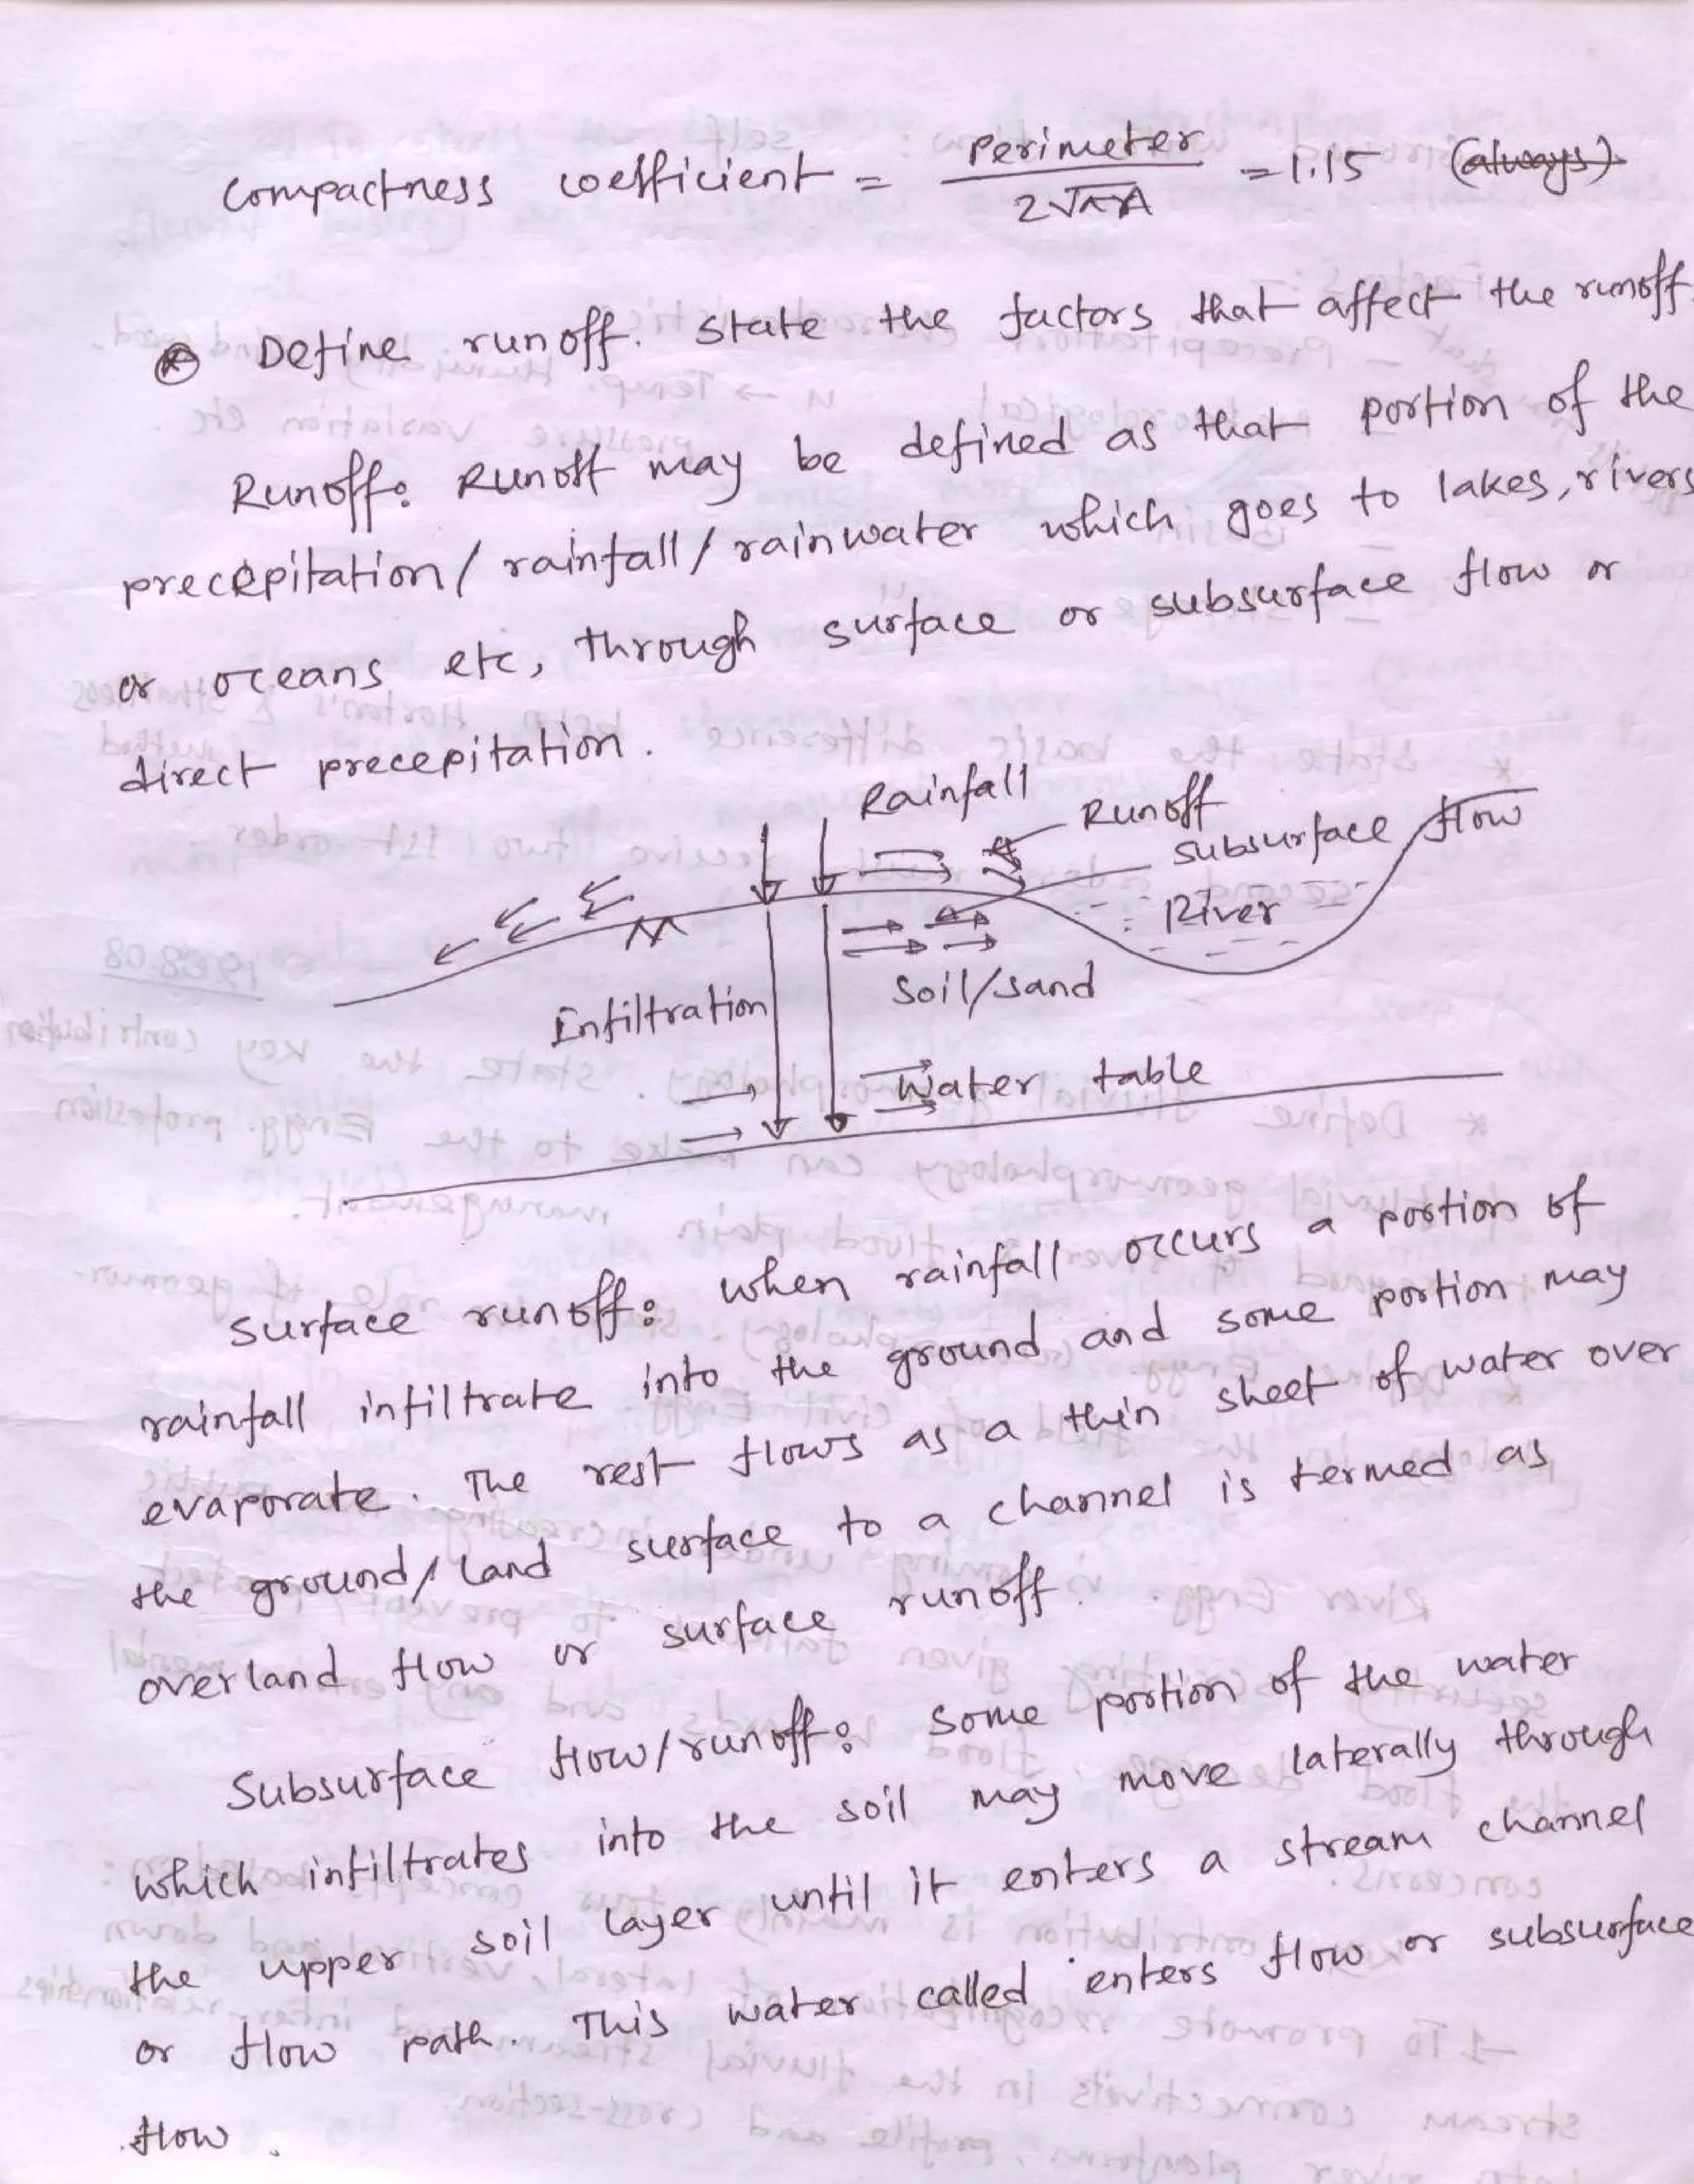 Compactness coefficient = Perimeter / 2√πA = 1.15 (always)
⊛ Define runoff. State the factors that affect the runoff.
Runoff: Runoff may be defined as that portion of the
precepitation / rainfall / rainwater which goes to lakes, rivers
or oceans etc, through surface or subsurface flow or
direct precepitation.
Rainfall
Runoff
Subsurface flow
River
Soil/sand
Enfiltration
Water table
Surface runoff: When rainfall occurs a portion of
rainfall infiltrate into the ground and some portion may
evaporate. The rest flows as a thin sheet of water over
the ground/land surface to a channel is termed as
overland flow or surface runoff.
Subsurface flow/runoff: Some portion of the water
which infiltrates into the soil may move laterally through
the upper soil layer until it enters a stream channel
or flow path. This water called enters flow or subsurface
flow.